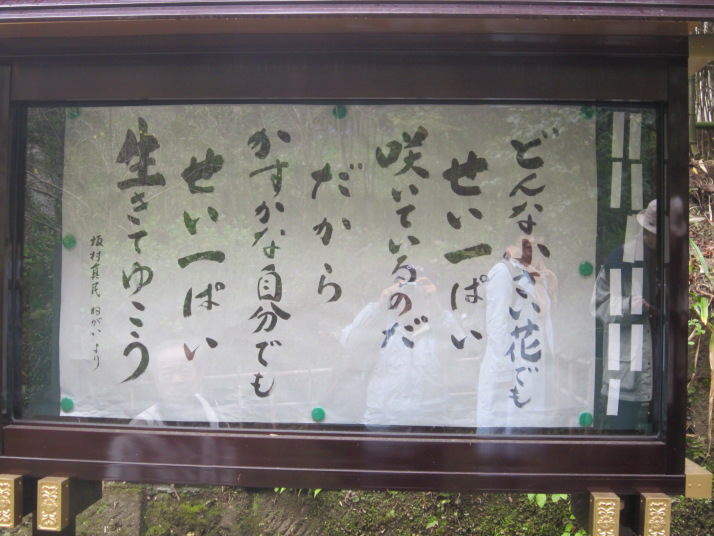 どんな小さい花でも
せい一ぱい
咲いているのだ
だから
かすかな自分でも
せい一ぱい
生きてゆこう
坂村真民 ねがい より